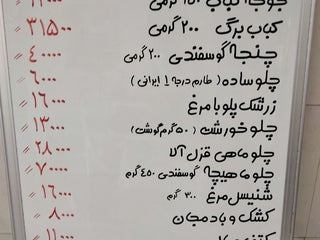 جوجه کباب
کباب برگ ۲۰۰ گرمی ۳۱۵۰۰
چنجه گوسفندی ۲۰۰ گرمی ۴۰۰۰۰
چلو ساده (طارم درجه ۱ ایرانی) ۶۰۰۰
زرشک پلو با مرغ ۱۶۰۰۰
چلو خورشت (۵۰ گرم گوشت) ۱۳۰۰۰
چلو ماهی قزل آلا ۲۸۰۰۰
چلو ماهیچه گوسفندی ۴۵۰ گرم ۷۰۰۰۰
شنیسل مرغ ۳۰۰ گرم ۱۶۰۰۰
کشک و بادمجان ۸۰۰۰